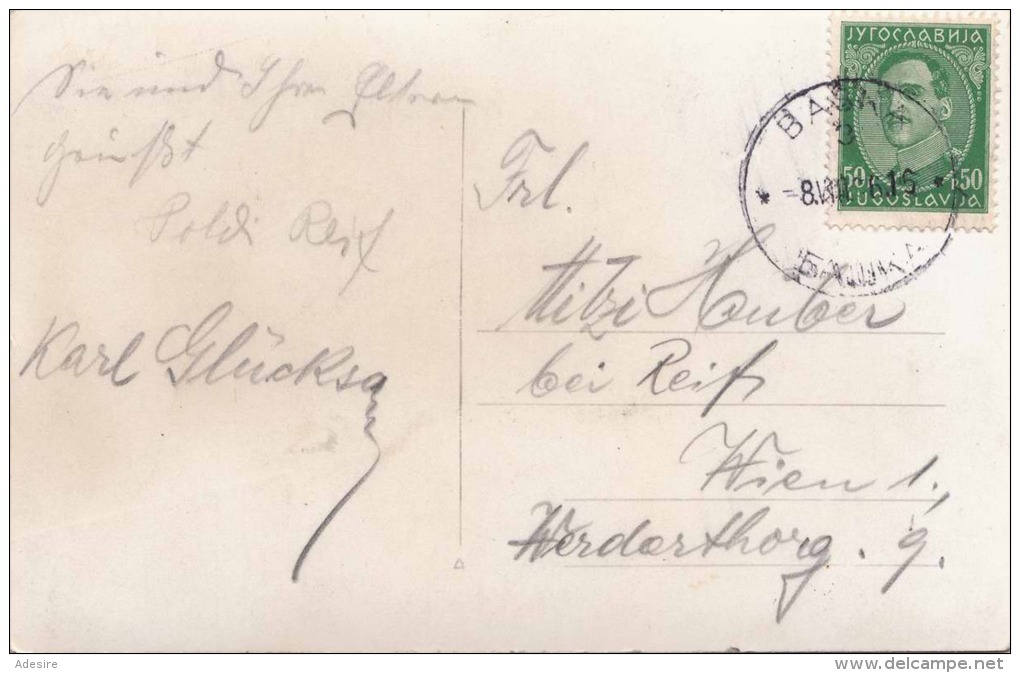 Sie und Ihre Eltern
grüßt
Poldi Reif
Karl Glücks
ЈУГОСЛАВИЈА
50 50
JUGOSLAVIJA
BAŠKA
БАШКА
Frl.
Mitzi Hauber
bei Reif
Wien 1.,
Werderthorg. 9.
Adesire
www.delcampe.net